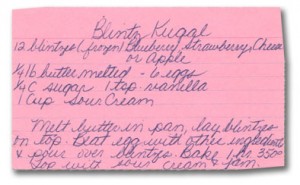 Blintz Kugal
12 blintzes (frozen) Blueberry, Strawberry, Cheese
or Apple
1/4 lb butter melted - 6 eggs
1/4 C sugar 1 tsp vanilla
1 Cup sour cream
Melt butter in pan, lay blintzes
on top. Beat egg with other ingredient
& pour over blintzes. Bake 1 hr 350°
Top with sour cream & jam